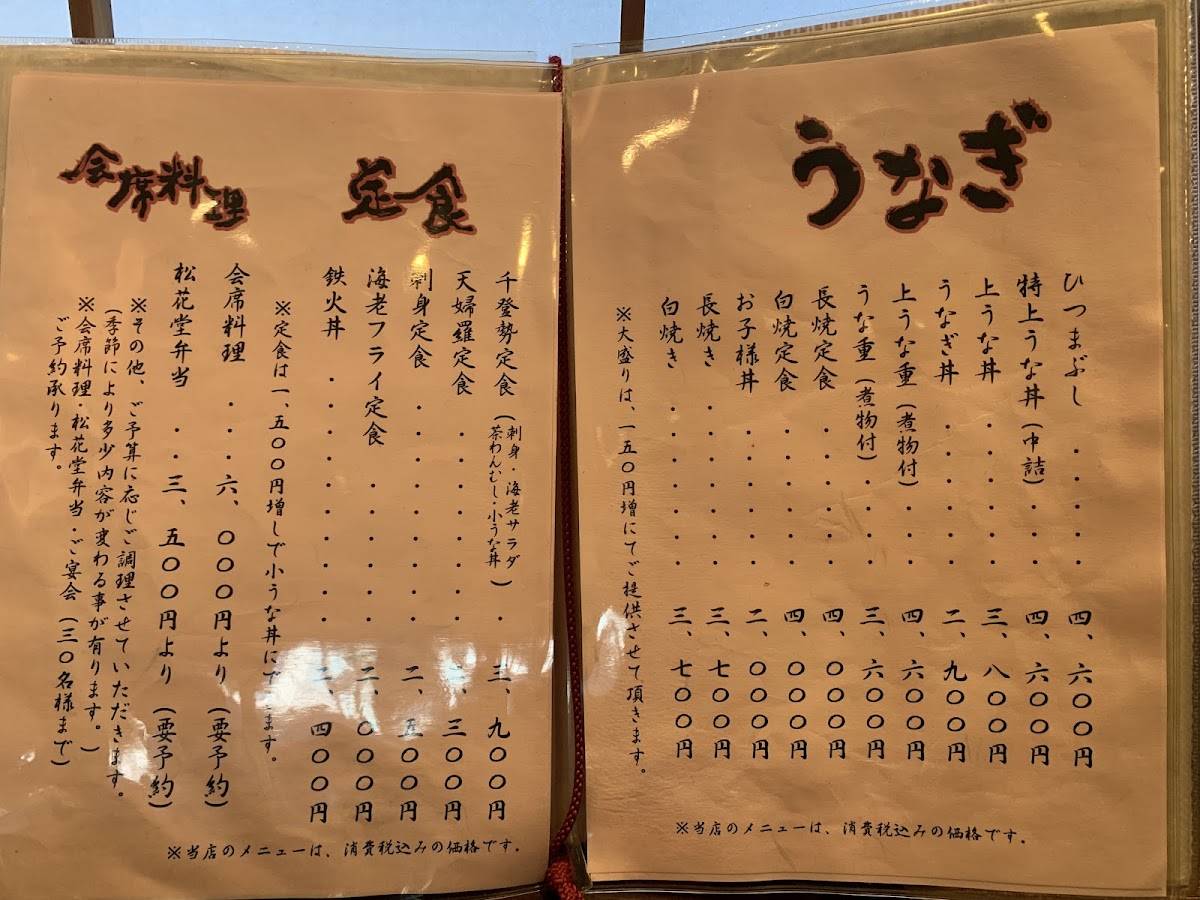 うなぎ
ひつまぶし・・・・・四、六〇〇円
特上うな丼(中詰)・・・四、六〇〇円
上うな丼・・・・・・三、八〇〇円
うなぎ丼・・・・・・・二、九〇〇円
上うな重(煮物付)・・・四、六〇〇円
うな重(煮物付)・・・・三、六〇〇円
長焼定食・・・・・・・四、〇〇〇円
白焼定食・・・・・・・四、〇〇〇円
お子様丼・・・・・・・二、〇〇〇円
長焼き・・・・・・・三、七〇〇円
白焼き・・・・・・・三、七〇〇円
※大盛りは、一五〇円増にてご提供させて頂きます。
※当店のメニューは、消費税込みの価格です。
定食
千登勢定食(刺身・海老サラダ
茶わんむし・小うな丼)・三、九〇〇円
天婦羅定食・・・・・・・二、三〇〇円
刺身定食・・・・・・・・二、五〇〇円
海老フライ定食・・・・・二、〇〇〇円
鉄火丼・・・・・・・・・二、四〇〇円
※定食は一、五〇〇円増しで小うな丼に ます。
会席料理
会席料理・・・六、〇〇〇円より(要予約)
松花堂弁当・・三、五〇〇円より(要予約)
※その他、ご予算に応じご調理させていただきます。
(季節により多少内容が変わる事が有ります。)
※会席料理・松花堂弁当・ご宴会(三〇名様まで)
ご予約承ります。
※当店のメニューは、消費税込みの価格です。